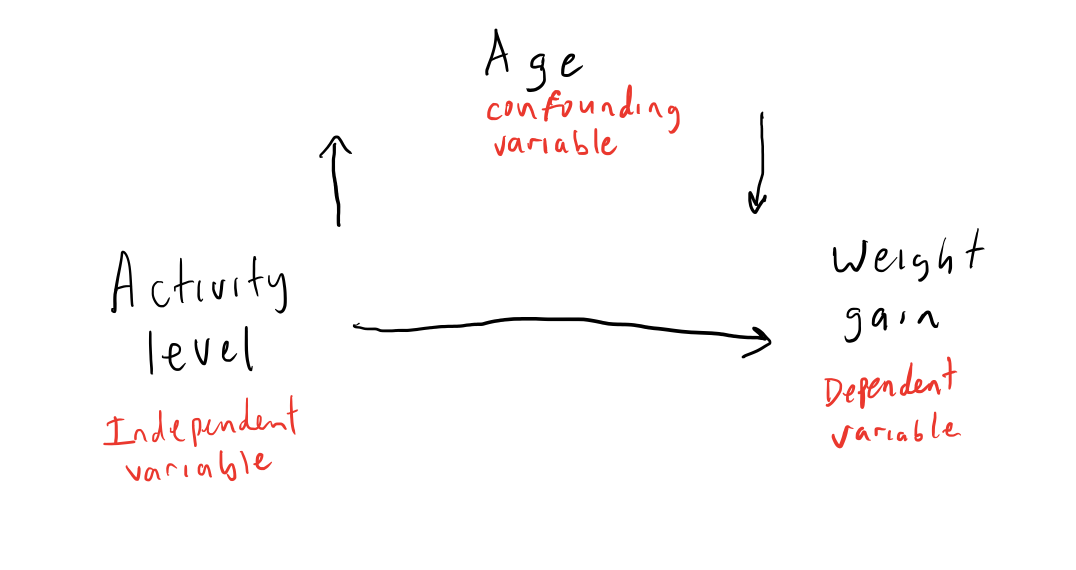 Age
confounding
variable
Activity
level
Independent
variable
Weight
gain
Dependent
variable